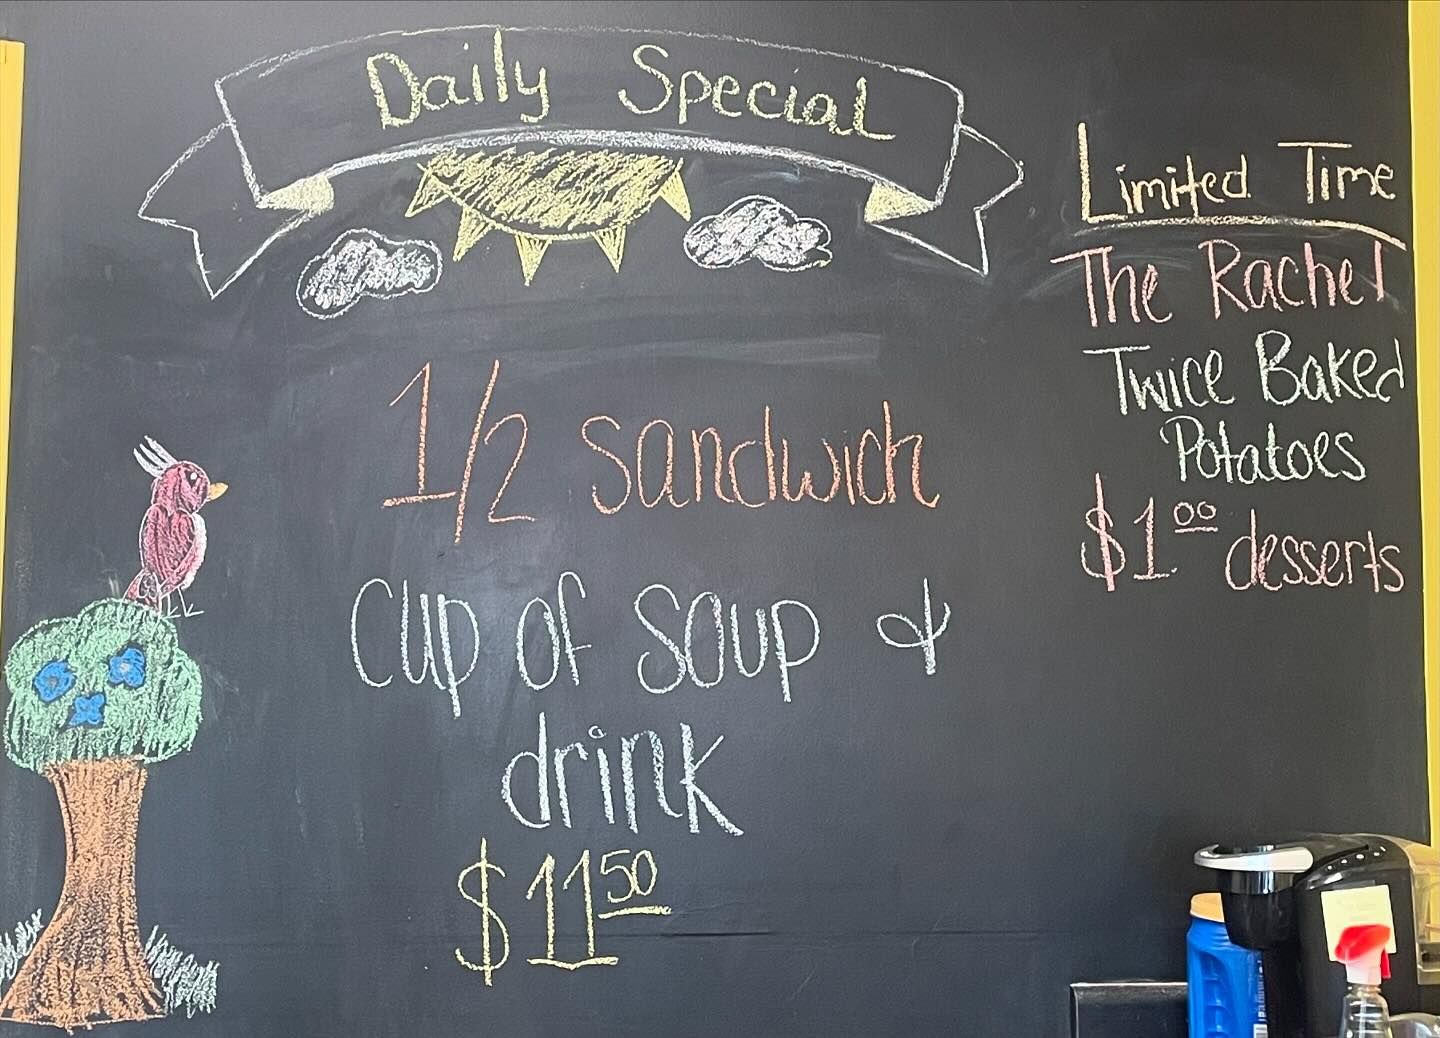 Daily Special
1/2 sandwich
cup of soup &
drink
$11 50
Limited Time
The Rachel
Twice Baked
Potatoes
$1.00 desserts